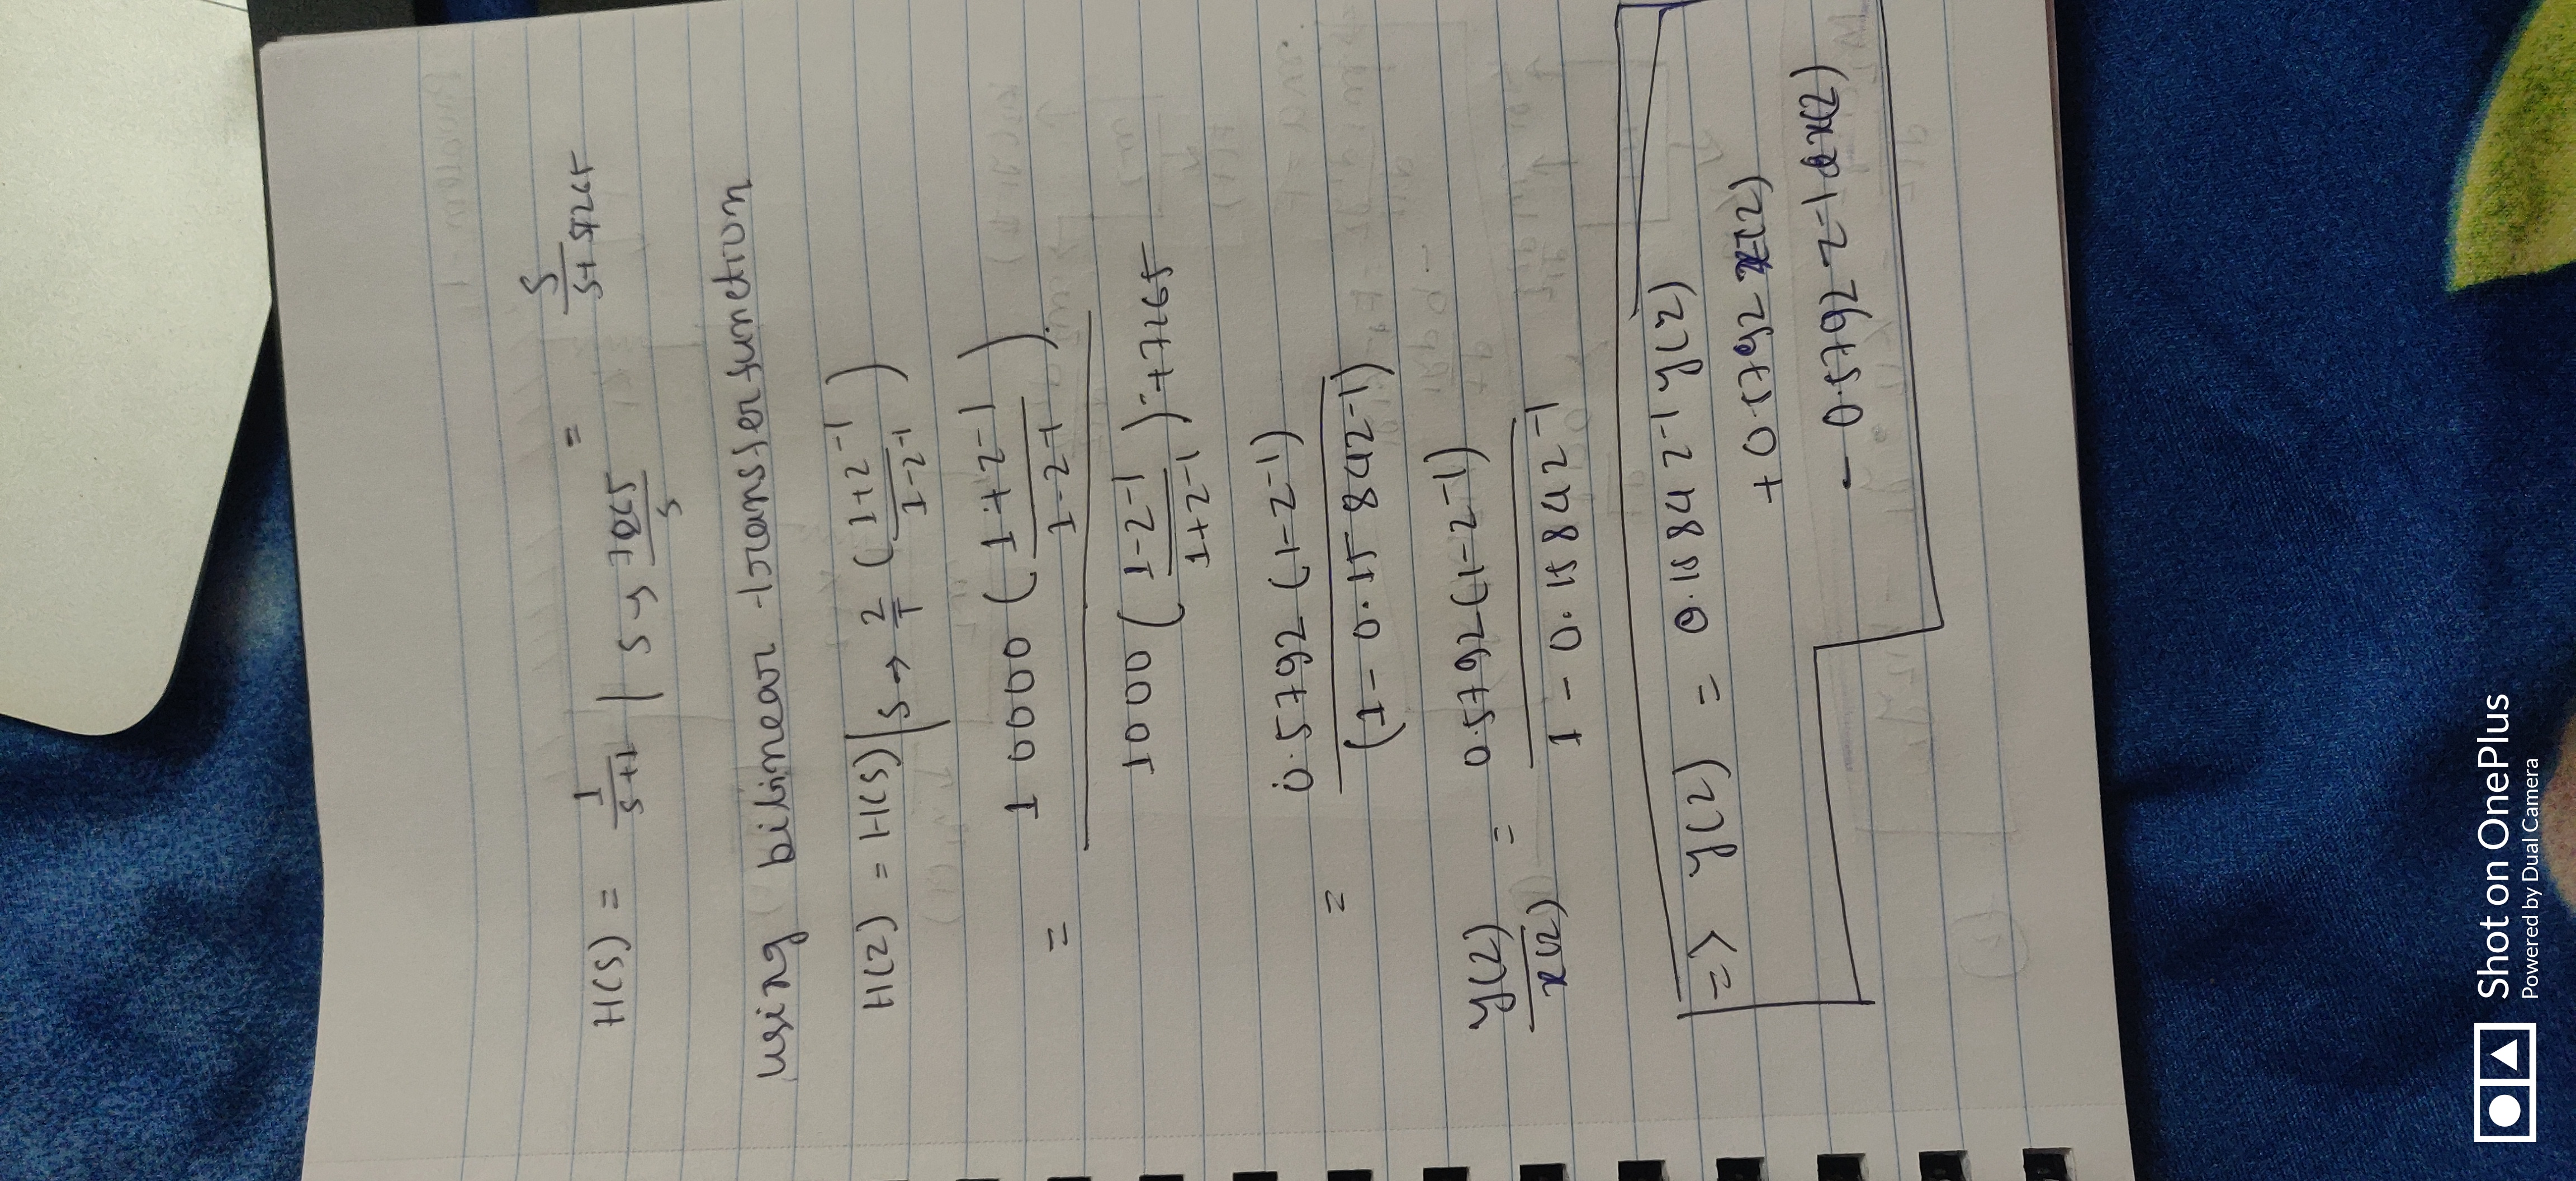 H(S) = 1/(s+1) | s → 7265/s = s/(s+7265)
using bilinear transfer function
H(z) = H(s)| s → 2/T ( (1+z^-1)/(1-z^-1) )
= 10000 ( (1+z^-1)/(1-z^-1) ) / 1000 ( (1-z^-1)/(1+z^-1) ) + 7265
= 0.5792 (1-z^-1) / (1-0.1584z^-1)
y(z)/x(z) = 0.5792(1-z^-1) / 1-0.1584z^-1
=> y(z) = 0.1584z^-1 y(z)
+0.5792 x(z)
- 0.5792 z^-1 x(z)
Shot on OnePlus
Powered by Dual Camera